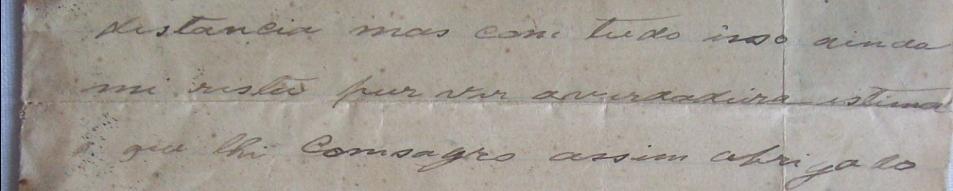 distancia mas com tudo isso ainda
mi resta por ver averdadeira estima
que lhi Comsagro assim obrigado